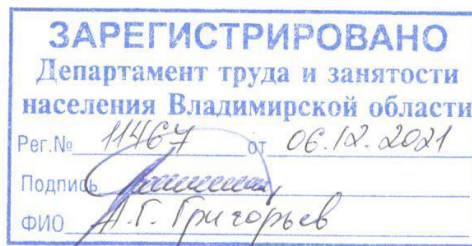 ЗАРЕГИСТРИРОВАНО
Департамент труда и занятости
населения Владимирской области
Рег.№ 11467 от 06.12.2021
Подпись
ФИО А.Г. Григорьев